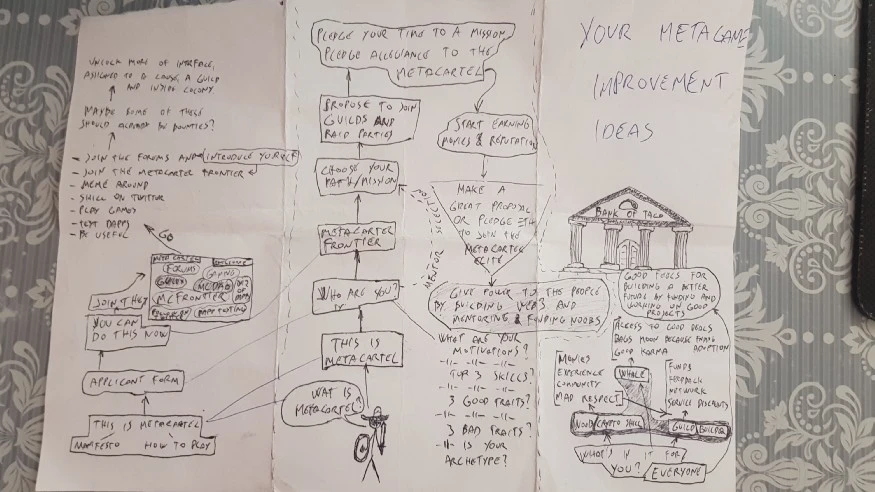 UNLOCK MORE OF INTERFACE,
ASSIGNED TO A GUILD
AND INSIDE COLONY
MAYBE SOME OF THESE
SHOULD BE BOUNTIES?
- JOIN THE FORUMS AND INTRODUCE YOURSELF
- JOIN THE METACARTEL FRONTIER
- MEME AROUND
- SHILL ON TWITTER
- PLAY GAMES
- TEST DAPPS
- BE USEFUL
GO
FORUMS
GAMING
MCDAO
MCFRONTIER
JOIN THEM
YOU CAN
DO THIS NOW
APPLICANT FORM
THIS IS METACARTEL
MANIFESTO HOW TO PLAY
PLEDGE YOUR TIME TO A MISSION
PLEDGE ALLEGIANCE TO THE
METACARTEL
PROPOSE TO JOIN
GUILDS AND
RAID PARTIES
CHOOSE YOUR
PATH/MISSION
METACARTEL
FRONTIER
WHO ARE YOU?
THIS IS
METACARTEL
WAT IS
METACARTEL?
START EARNING
MOVIES & REPUTATION
MAKE A
GREAT PROPOSAL
OR PLEDGE ETH
TO JOIN THE
METACARTEL
ELITE
MENTOR SELECTION
GIVE POWER TO THE PEOPLE
BY BUILDING WEB3 AND
MENTORING & FUNDING NOOBS
WHAT ARE YOUR
MOTIVATIONS?
-11- -11- -11-
TOP 3 SKILLS?
-11- -11- -11-
3 GOOD TRAITS?
-11- -11- -11-
3 BAD TRAITS?
-11- IS YOUR
ARCHETYPE?
YOUR METAGAME
IMPROVEMENT
IDEAS
BANK OF TACO
GOOD FEELS FOR
BUILDING A BETTER
FUTURE BY FUNDING AND
WORKING ON GOOD
PROJECTS
ACCESS TO GOOD DEALS
BAGS MOON BECAUSE
ADOPTION
GOOD KARMA
MOVIES
EXPERIENCE
COMMUNITY
MAD RESPECT
WHALE
FUNDS
FEEDBACK
NETWORK
SERVICE DISCOUNTS
NOOB CRYPTO SHILL GUILD BUILDER
WHO'S IT FOR
YOU? EVERYONE